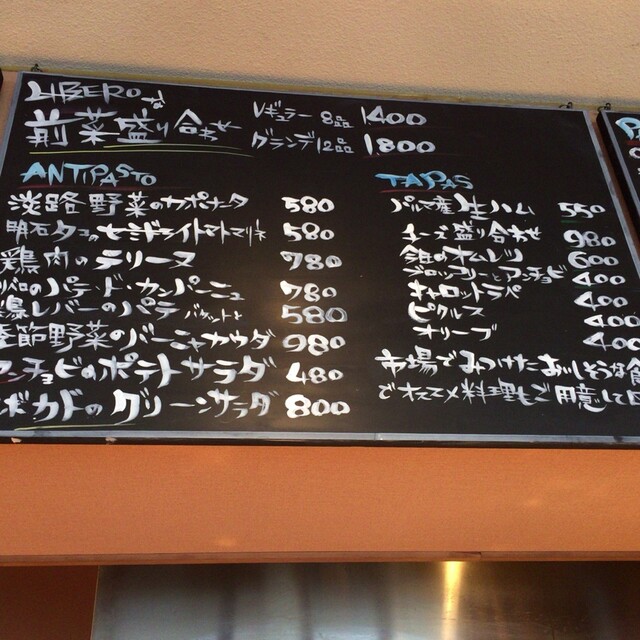 LIBEROな
前菜盛り合わせ
レギュラー 8品 1400
グランデ 12品 1800
ANTIPASTO
淡路野菜のカポナータ 580
明石タコのセミドライトマトマリネ 580
鶏肉のテリーヌ 780
のパテ・ド・カンパーニュ 780
鶏レバーのパテ バケット付 580
季節野菜のバーニャカウダ 980
アンチョビのポテトサラダ 480
ボカドのグリーンサラダ 800
TAPAS
パルマ産生ハム 550
ハム盛り合わせ 980
オムレツ 600
ブロッコリーとアンチョビ 400
キャロットラペ 400
ピクルス 400
オリーブ 400
市場でみつけたおいしそうな食
でオススメ料理もご用意して